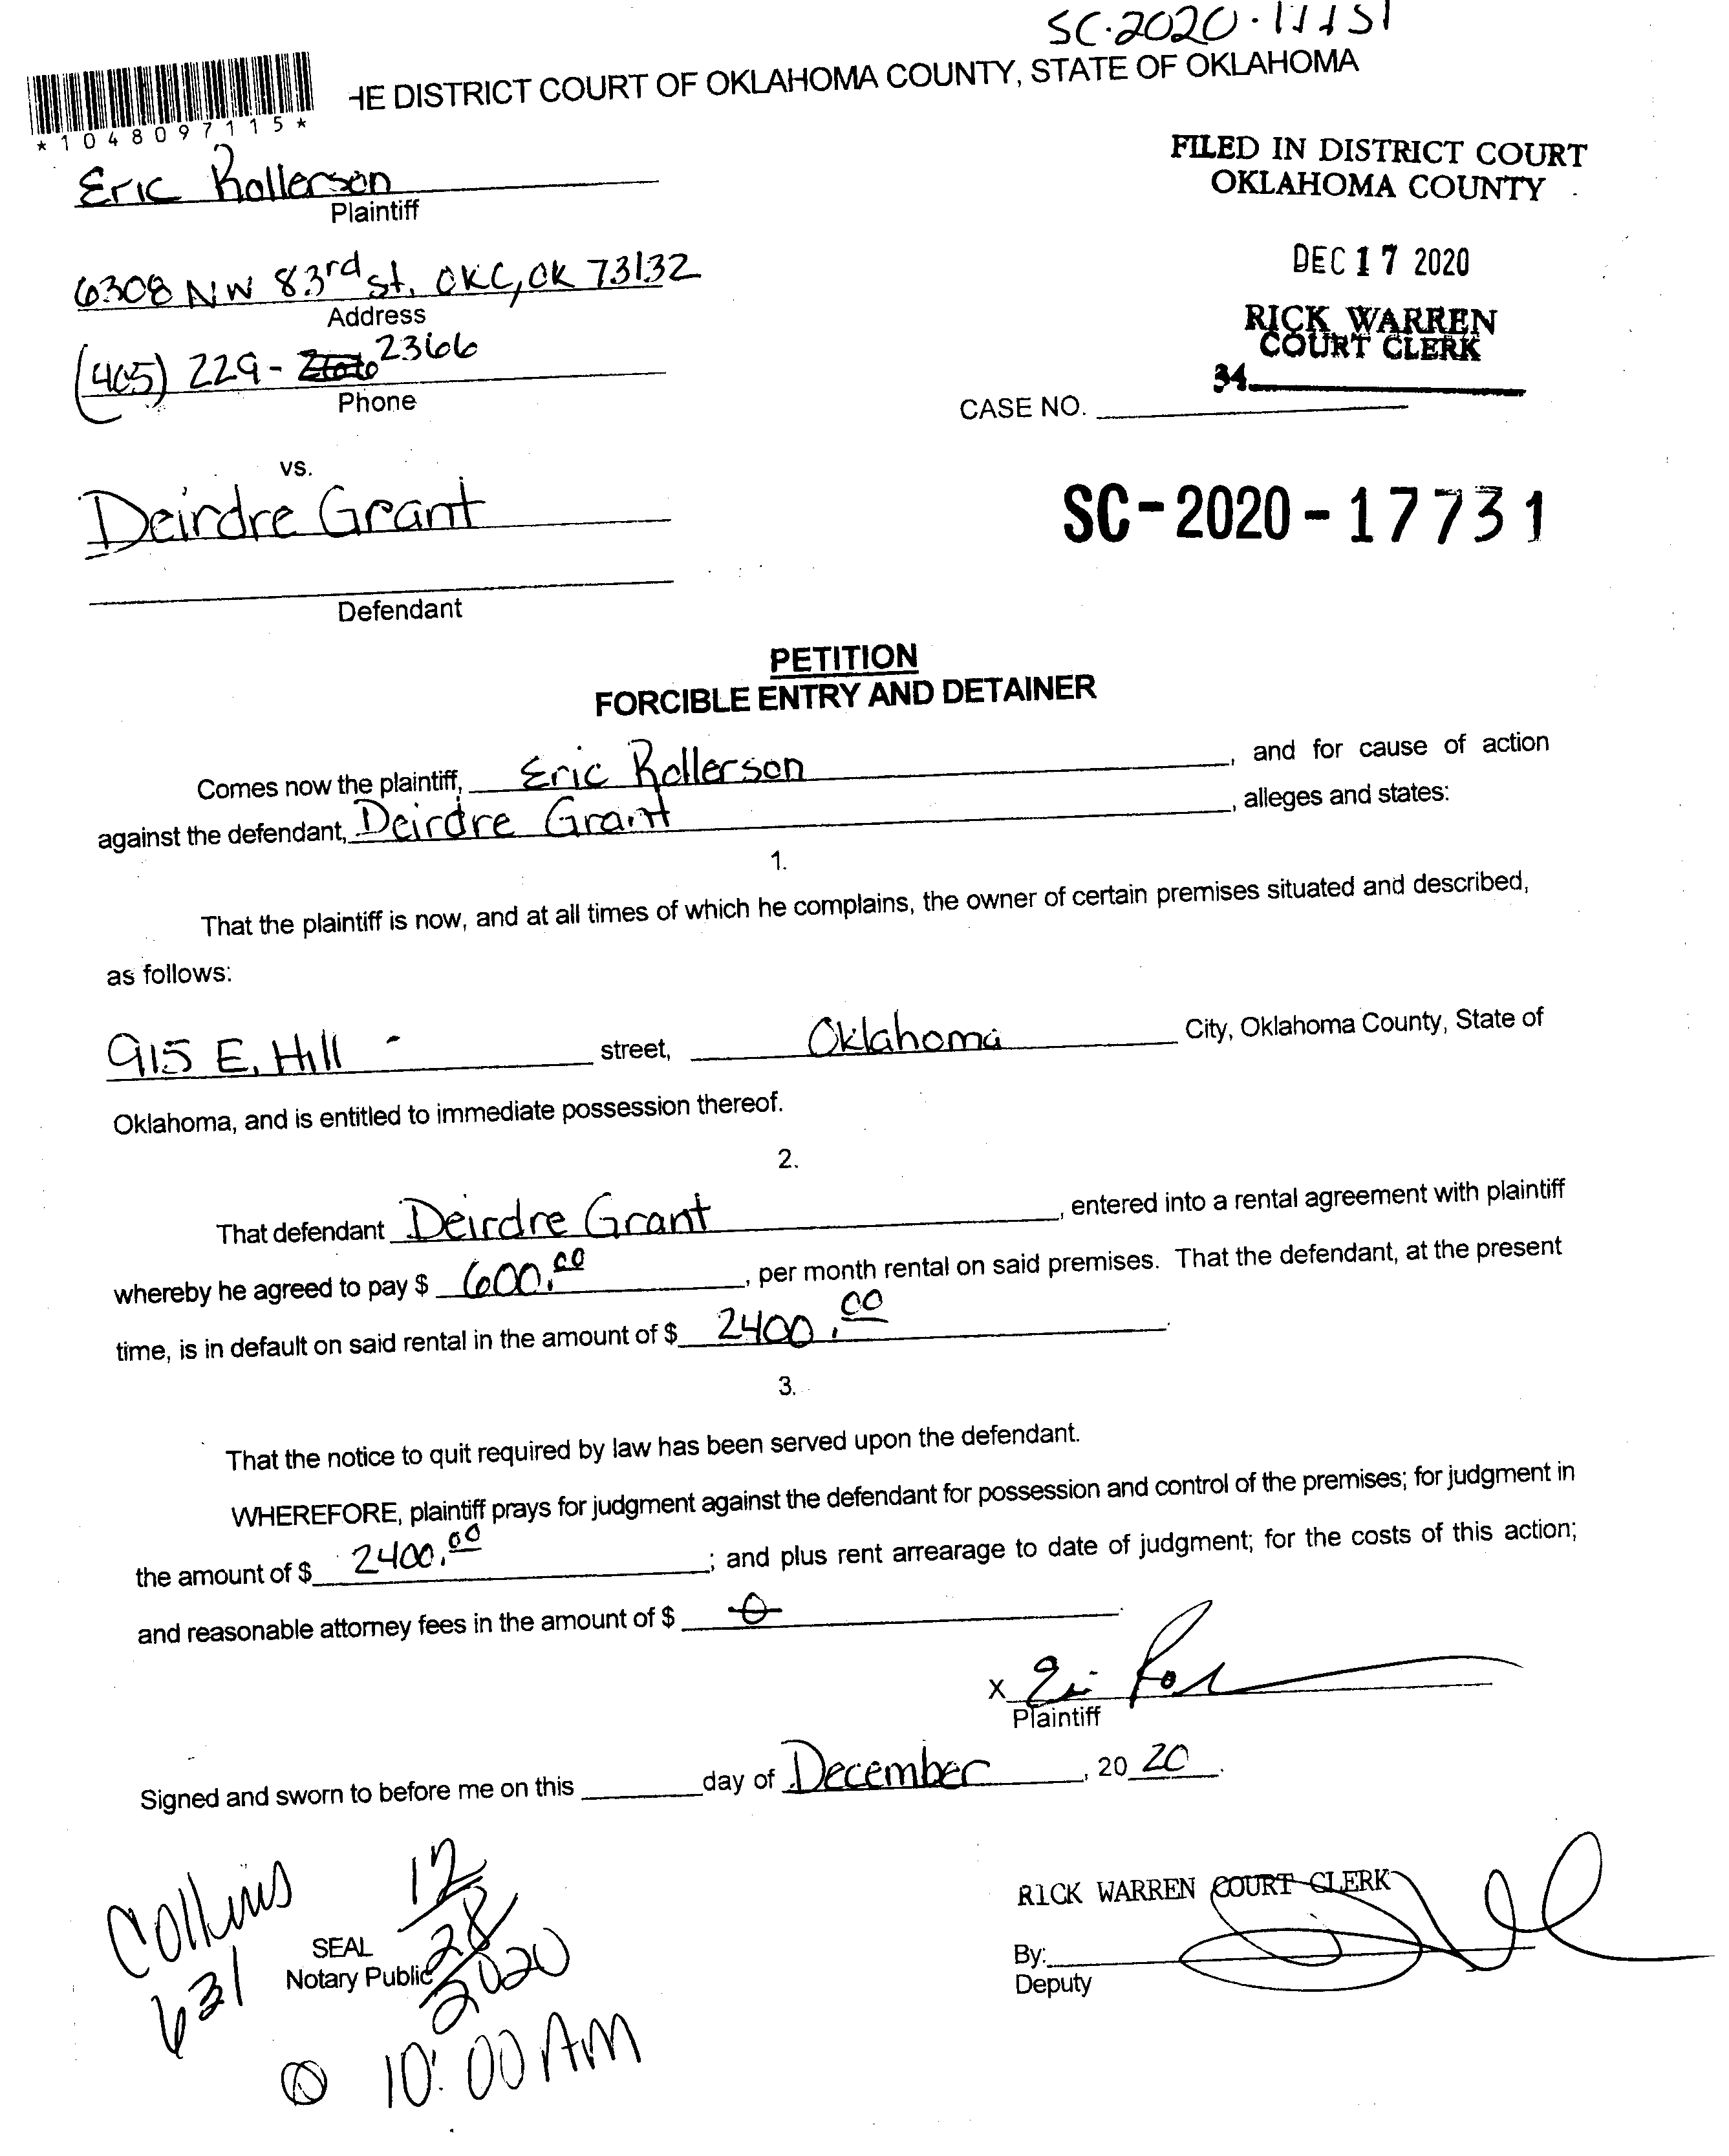 SC-2020-
HE DISTRICT COURT OF OKLAHOMA COUNTY, STATE OF OKLAHOMA
*1048097115*
FILED IN DISTRICT COURT
OKLAHOMA COUNTY
Eric Rollerson
Plaintiff
DEC 17 2020
6308 NW 83rd St. OKC, OK 73132
Address
RICK WARREN
COURT CLERK
34
(405) 229- 2366
Phone
CASE NO.
vs.
Deirdre Grant
SC-2020-17731
Defendant
PETITION
FORCIBLE ENTRY AND DETAINER
Comes now the plaintiff, Eric Rollerson, and for cause of action
against the defendant, Deirdre Grant, alleges and states:
1.
That the plaintiff is now, and at all times of which he complains, the owner of certain premises situated and described,
as follows:
915 E. Hill - street, Oklahoma City, Oklahoma County, State of
Oklahoma, and is entitled to immediate possession thereof.
2.
That defendant Deirdre Grant, entered into a rental agreement with plaintiff
whereby he agreed to pay $ 600.00, per month rental on said premises. That the defendant, at the present
time, is in default on said rental in the amount of $ 2400.00.
3.
That the notice to quit required by law has been served upon the defendant.
WHEREFORE, plaintiff prays for judgment against the defendant for possession and control of the premises; for judgment in
the amount of $ 2400.00; and plus rent arrearage to date of judgment; for the costs of this action;
and reasonable attorney fees in the amount of $ 0.
X
Plaintiff
Signed and sworn to before me on this day of December, 20 20.
Collins
631
12/28/2020
@ 10:00 AM
SEAL
Notary Public
RICK WARREN COURT CLERK
By:
Deputy